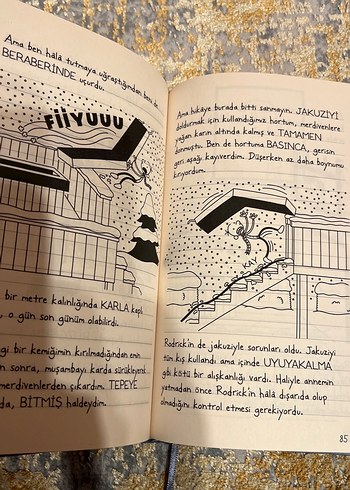 Ama ben hâlâ tutmaya uğraştığımdan ben de
BERABERİNDE uçurdu.
FİİYUUU
bir metre kalınlığında KARLA kaplı
, o gün son günüm olabilirdi.
gi bir kemiğimin kırılmadığından emin
n sonra, muşambayı karda sürükleyerek
merdivenlerden çıkardım. TEPEYE
da, BİTMİŞ haldeydim.
Ama hikâye burada bitti sanmayın. JAKUZİYİ
doldurmak için kullandığımız hortum, merdivenlere
yağan karın altında kalmış ve TAMAMEN
donmuştu. Ben de hortuma BASINCA, gerisin
geri aşağı kayıverdim. Düşerken az daha boynumu
kırıyordum.
Rodrick'in de jakuziyle sorunları oldu. Jakuziyi
tüm kış kullandı ama içinde UYUYAKALMA
gibi kötü bir alışkanlığı vardı. Haliyle annemin
yatmadan önce Rodrick'in hâlâ dışarıda olup
olmadığını kontrol etmesi gerekiyordu.
85